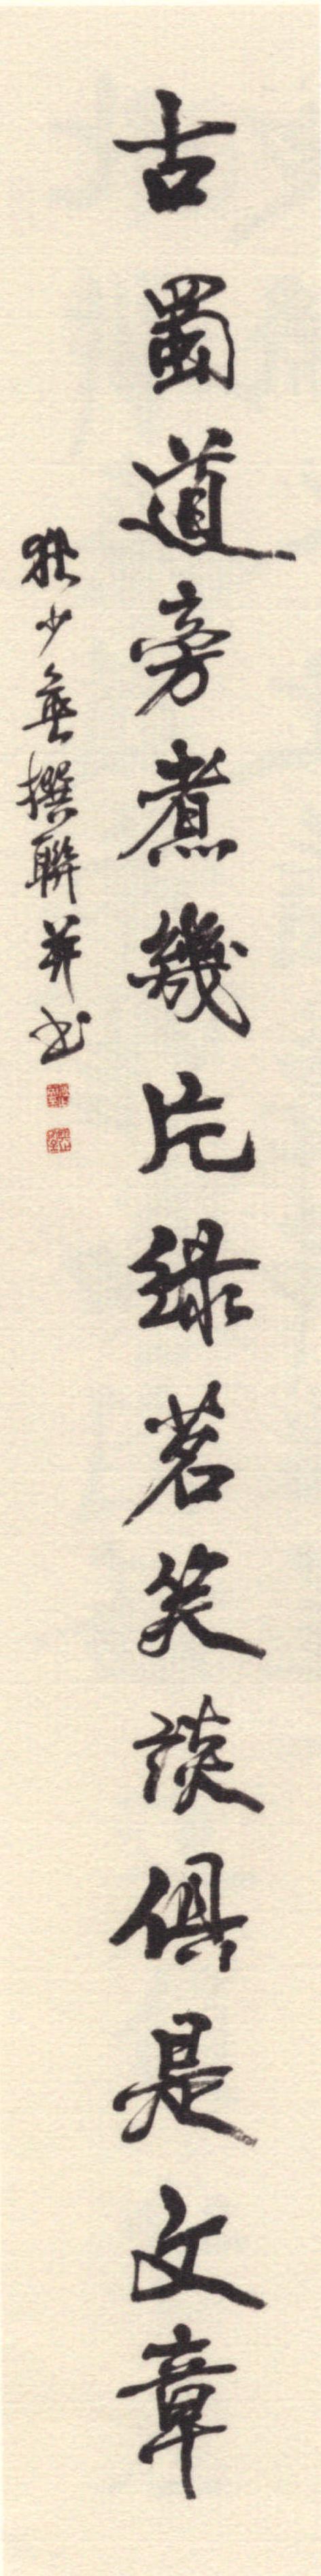 古蜀道旁煮幾片綠茗笑談俱是文章
少無撰聯并书